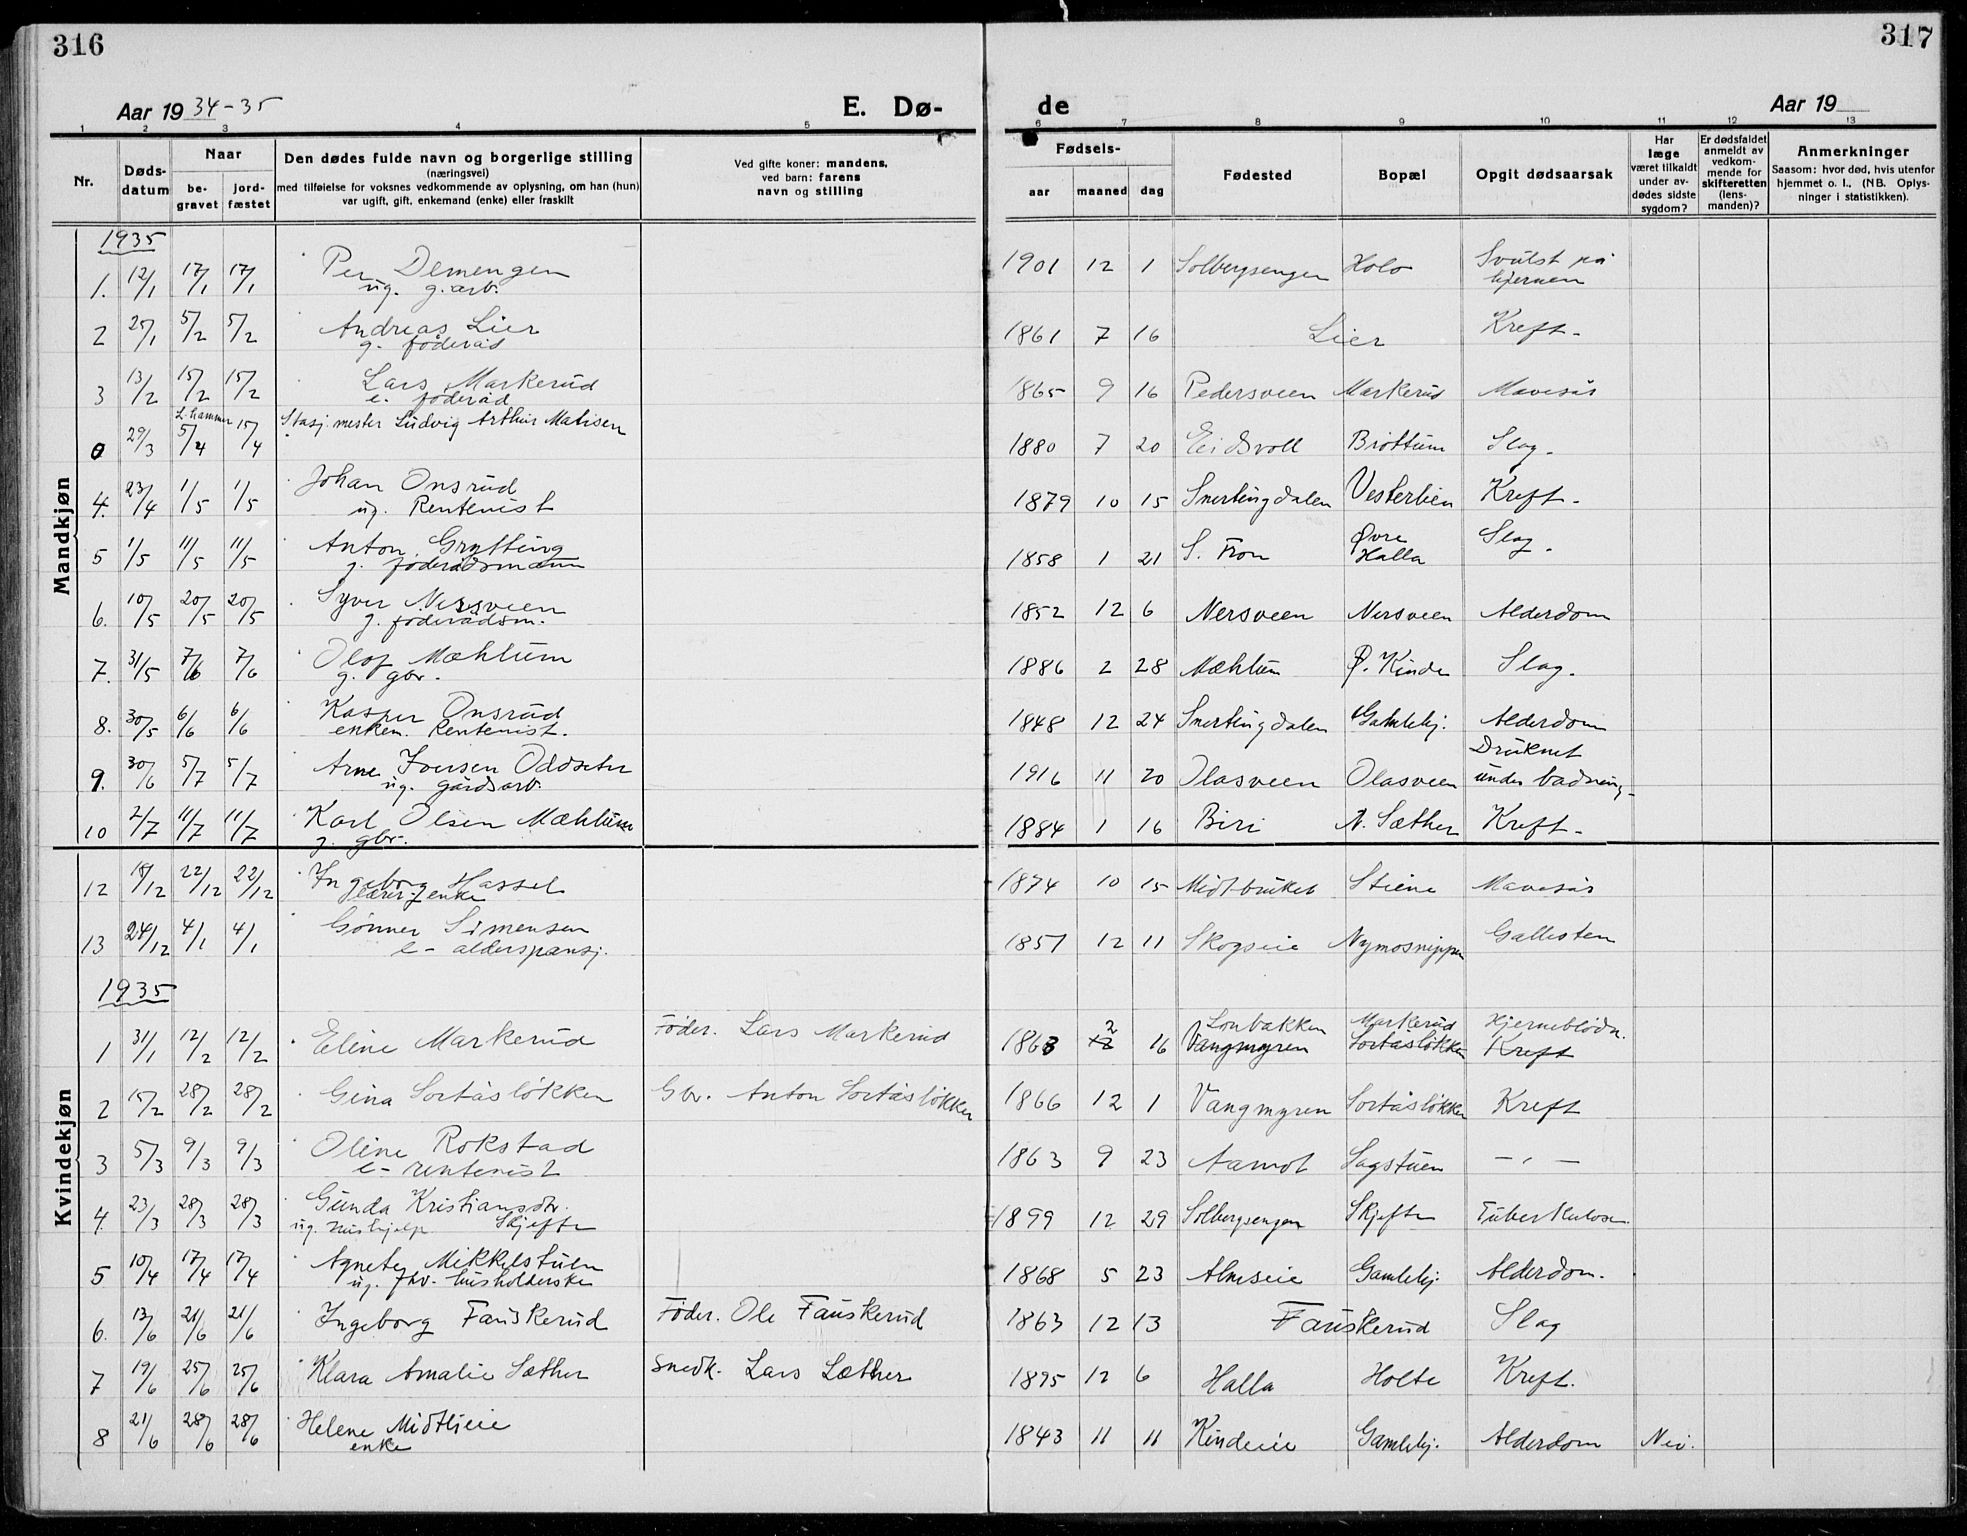 316
317
Aar 1934-35
E. Dø-
de
Aar 19
1 2 3 4 5 6 7 8 9 10 11 12 13
Nr.
Døds-
datum
Naar
be-
gravet
jord-
fæstet
Den dødes fulde navn og borgerlige stilling
(næringsvei)
med tilføielse for voksnes vedkommende av oplysning, om han (hun)
var ugift, gift, enkemand (enke) eller fraskilt
Ved gifte koner: mandens,
ved barn: farens
navn og stilling
Fødsels-
aar maaned dag
Fødested
Bopæl
Opgit dødsaarsak
Har
læge
været tilkaldt
under av-
dødes sidste
sygdom?
Er dødsfaldet
anmeldt av
vedkom-
mende for
skifteretten
(lens-
manden)?
Anmerkninger
Saasom: hvor død, hvis utenfor
hjemmet o. l., (NB. Oplys-
ninger i statistikken).
Mandkjøn
1935
1. 12/1 17/1 17/1 Per Demengen 1901 12 1 Solbergsengen Holo Svulst på
ug. g.arb. hjernen
2 25/1 5/2 5/2 Andreas Lier 1861 7 16 Lier Kreft-
g. føderåd
3 13/2 15/2 15/2 Lars Markerud 1865 9 16 Pedersveen Markerud Mavesår
e. føderåd
L.hammer
0 29/3 5/4 15/4 Stasj.mester Ludvig Arthur Matisen 1880 7 20 Eidsvoll Brøttum Slag.
4. 23/4 1/5 1/5 Johan Onsrud 1879 10 15 Snertingdalen Vesterlien Kreft-
ug. Rentenist
5 1/5 11/5 11/5 Anton Grytting 1858 1 21 S. Fron Øvre Slag.
g. føderådsmann Halla
6. 10/5 20/5 20/5 Syver Nersveen 1852 12 6 Nersveen Nersveen Alderdom
g. føderådsm.
7. 31/5 7/6 7/6 Olof Mæhlum 1886 2 28 Mæhlum Ø. Kinde Slag.
g. gbr.
8. 30/5 6/6 6/6 Kasper Onsrud 1848 12 24 Snertingdalen Gamlehj. Alderdom
enkem. Rentenist.
9. 30/6 5/7 5/7 Arne Iversen Oddseter 1916 11 20 Olasveen Olasveen Druknet
ug. gårdsarb. under badning-
10 2/7 11/7 11/7 Karl Olsen Mæhlum 1884 1 16 Biri N. Sæther Kreft-
g. gbr.
Kvindekjøn
12 18/12 22/12 22/12 Ingeborg Hassel 1874 10 15 Midtbruket Stiene Mavesår
lærerenke
13 24/12 4/1 4/1 Gunner Simensen 1851 12 11 Skogseie Nymosnippen Gallesten
e- alderspensj.
1935
1 31/1 12/2 12/2 Eline Markerud Føder. Lars Markerud 1863 2 16 Lonbakken Markerud Hjerneblødn.
Vangmyren Sortåsløkken Kreft
2 15/2 28/2 28/2 Gina Sortåsløkken Gbr. Anton Sortåsløkken 1866 12 1 Vangmyren Sortåsløkken Kreft
3 5/3 9/3 9/3 Oline Rokstad 1863 9 23 Aamot Sagstuen — " —
e- rentenist
4. 23/3 28/3 28/3 Gunda Kristiansdtr. 1899 12 29 Solbergsengen Skjefte Tuberkulose
ug. hushjelp Skjefte
5 10/4 17/4 17/4 Agnete Mikkelstuen 1868 5 23 Almseie Gamlehj. Alderdom.
ug. fhv. husholderske
6. 13/6 21/6 21/6 Ingeborg Fauskerud Føder. Ole Fauskerud 1863 12 13 Fauskerud Slag
7 19/6 25/6 25/6 Klara Amalie Sæther Snedk. Lars Sæther 1895 12 6 Halla Holte Kreft.
8 21/6 28/6 28/6 Helene Midtlieie 1843 11 11 Kindeie Gamlehj. Alderdom Nei.
enke